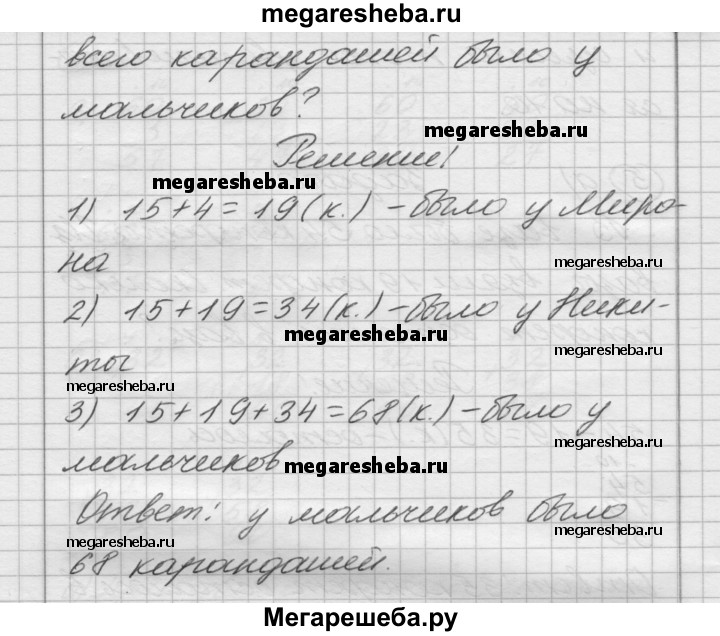 megaresheba.ru
всего карандашей было у
мальчиков?
megaresheba.ru
Решение!
megaresheba.ru
1) 15+4=19(к.)-было у Миро-
на
megaresheba.ru
2) 15+19=34(к.)-было у Ники-
megaresheba.ru
megaresheba.ru
ты
megaresheba.ru
3) 15+19+34=68(к.)-было у
megaresheba.ru
мальчиков
megaresheba.ru
Ответ: у мальчиков было
megaresheba.ru
megaresheba.ru
68 карандашей.
Мегарешеба.ру